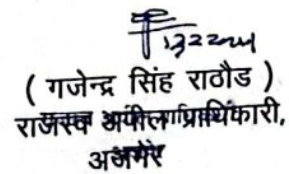 ( गजेन्द्र सिंह राठौड )
राजस्व अपील प्राधिकारी,
अजमेर